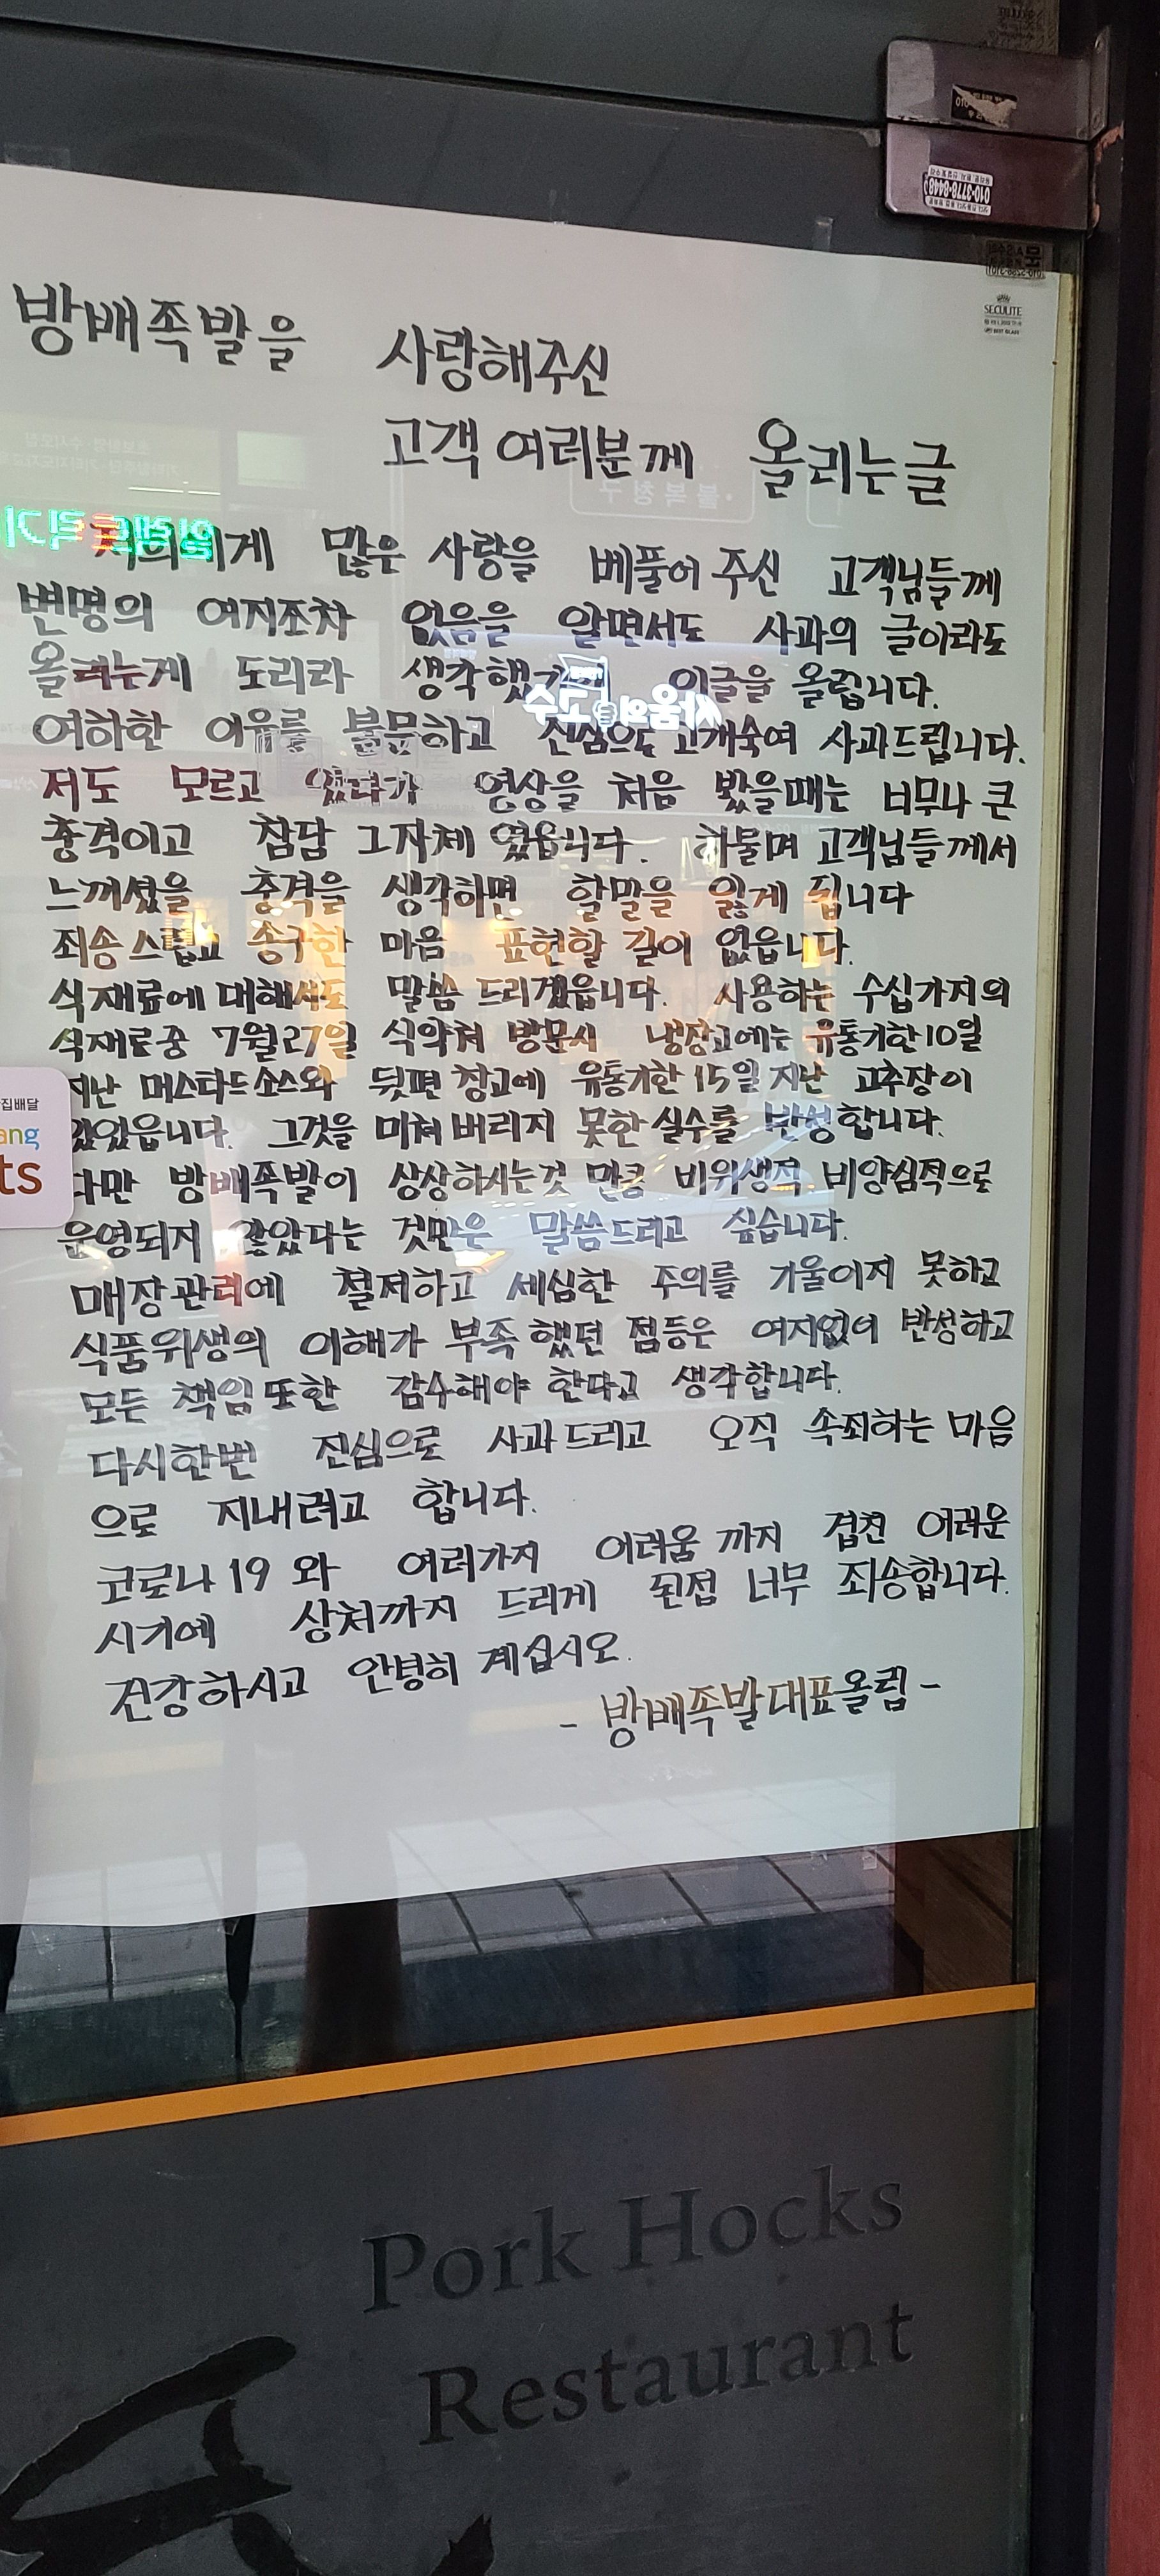 방배족발을 사랑해주신
고객 여러분께 올리는글
저희에게 많은 사랑을 베풀어 주신 고객님들께
변명의 여지조차 없음을 알면서도 사과의 글이라도
올리는게 도리라 생각했기에 이글을 올립니다.
여하한 이유를 불문하고 진심으로 고개숙여 사과드립니다.
저도 모르고 있다가 영상을 처음 봤을때는 너무나 큰
충격이고 참담 그자체 였읍니다. 하물며 고객님들께서
느끼셨을 충격을 생각하면 할말을 잃게 됩니다
죄송스럽고 송구한 마음 표현할 길이 없읍니다.
식재료에 대해서도 말씀 드리겠읍니다. 사용하는 수십가지의
식재료중 7월27일 식약처 방문시 냉장고에는 유통기한10일
지난 머스타드소스와 뒷편 창고에 유통기한 15일 지난 고추장이
있었읍니다. 그것을 미쳐 버리지 못한 실수를 반성합니다.
다만 방배족발이 상상하시는것 만큼 비위생적 비양심적으로
운영되지 않았다는 것만은 말씀드리고 싶습니다.
매장관리에 철저하고 세심한 주의를 기울이지 못하고
식품위생의 이해가 부족했던 점등은 여지없이 반성하고
모든 책임 또한 감수해야 한다고 생각합니다.
다시한번 진심으로 사과드리고 오직 속죄하는 마음
으로 지내려고 합니다.
코로나19 와 여러가지 어려움 까지 겹친 어려운
시기에 상처까지 드리게 된점 너무 죄송합니다.
건강하시고 안녕히 계십시오.
- 방배족발대표올림 -
집배달
ang
ts
010-3778-8448
SECULITE
Pork Hocks
Restaurant